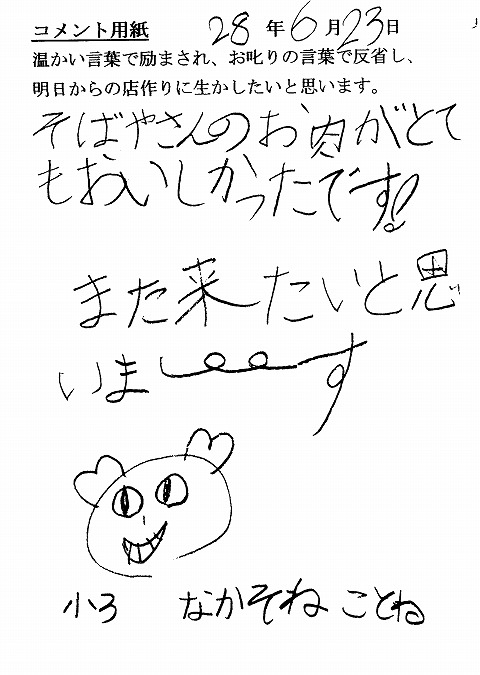 コメント用紙 28年6月23日
温かい言葉で励まされ、お叱りの言葉で反省し、
明日からの店作りに生かしたいと思います。
そばやさんのお肉がとて
もおいしかったです!
また来たいと思
いまーす
小3 なかそね ことね